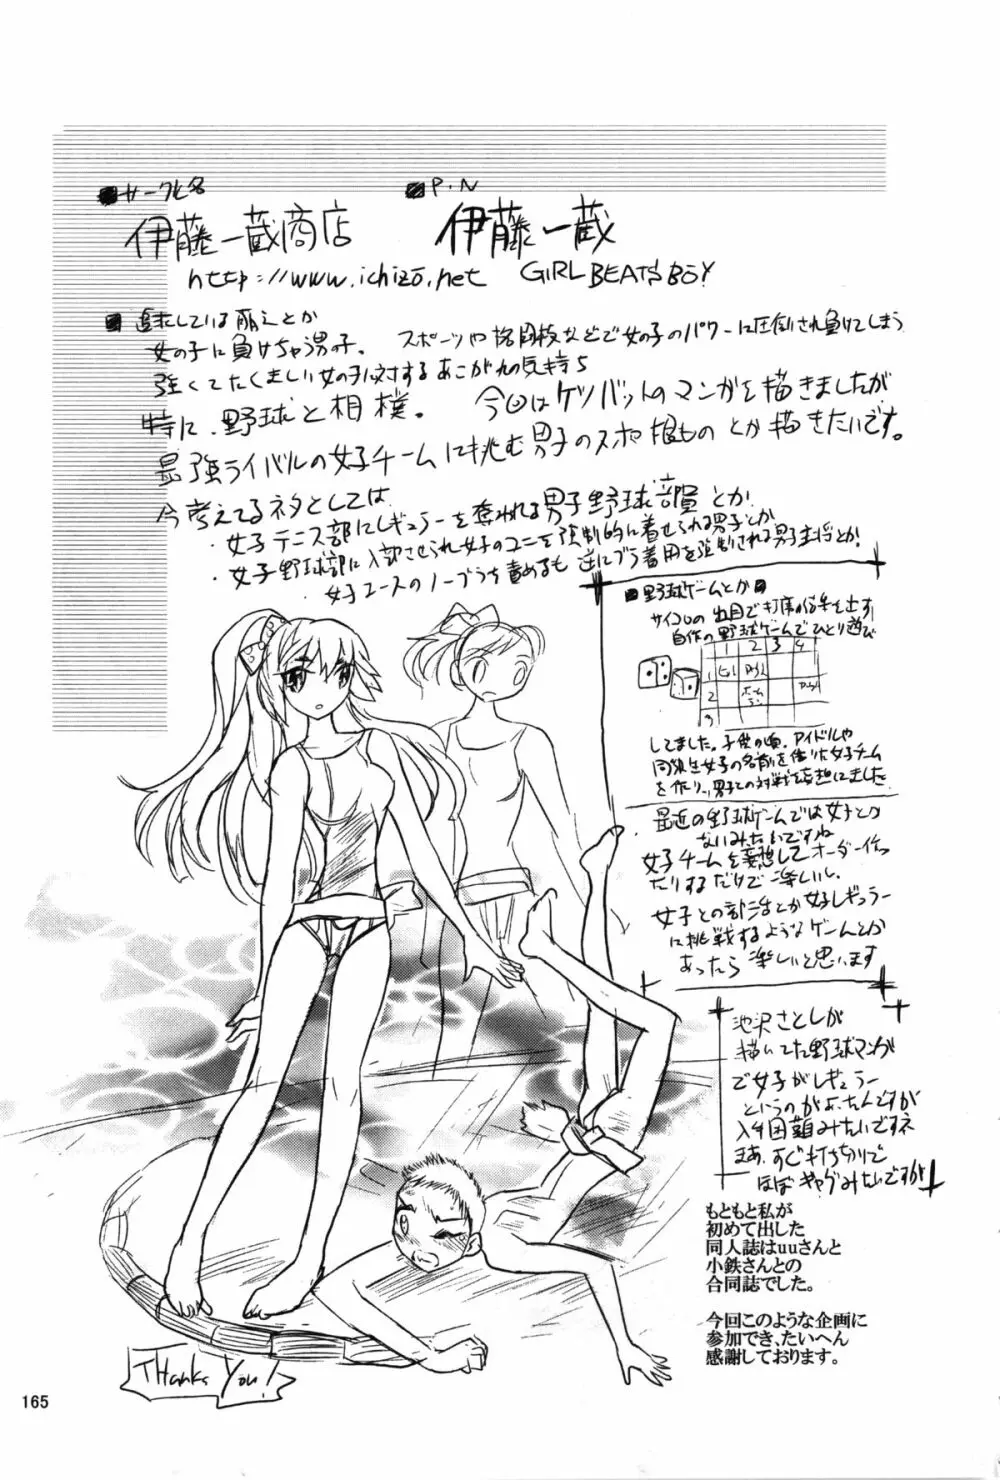 ■サークル名
伊藤一蔵商店
■P.N
伊藤一蔵
http://www.ichizo.net GIRL BEATS BOY
■追求している萌えとか
女の子に負けちゃう男子。 スポーツや格闘技などで女の子のパワーに圧倒され負けてしまう
強くてたくましい女の子に対するあこがれの気持ち
特に、野球と相撲。 今回はケツバットのマンガを描きましたが
最強ライバルの女子チームに挑む男子のスポ根ものとか描きたいです。
今考えてるネタとしては
・女子テニス部にレギュラーを奪われる男子野球部員とか
・女子野球部に入部させられ女子のユニを強制的に着せられる男子とか
・女子ユースのノーブラを責めるも逆にブラ着用を強制される男子主将とか!
■野球ゲームとか■
サイコロの出目で打席の結果を出す
自作の野球ゲームでひとり遊び
1 2 3 4
1
2 ホームラン
3
してました。子供の頃、アイドルや
同級生女子の名前を使った女子チーム
を作り、男子との対戦を妄想しました
最近の野球ゲームでは女子とか
ないみたいですね
女子チームを妄想してオーダー作っ
たりするだけで楽しいし
女子との部活とか女子レギュラー
に挑戦するようなゲームとか
あったら楽しいと思います
池沢さとしが
描いてた野球マンガ
で女子がレギュラー
というのがあったんですが
入手困難みたいですネ
まあ、すぐ打ち切りで
ほぼギャグみたいですが
もともと私が
初めて出した
同人誌はuuさんと
小鉄さんとの
合同誌でした。
今回このような企画に
参加でき、たいへん
感謝しております。
THanks You!
165